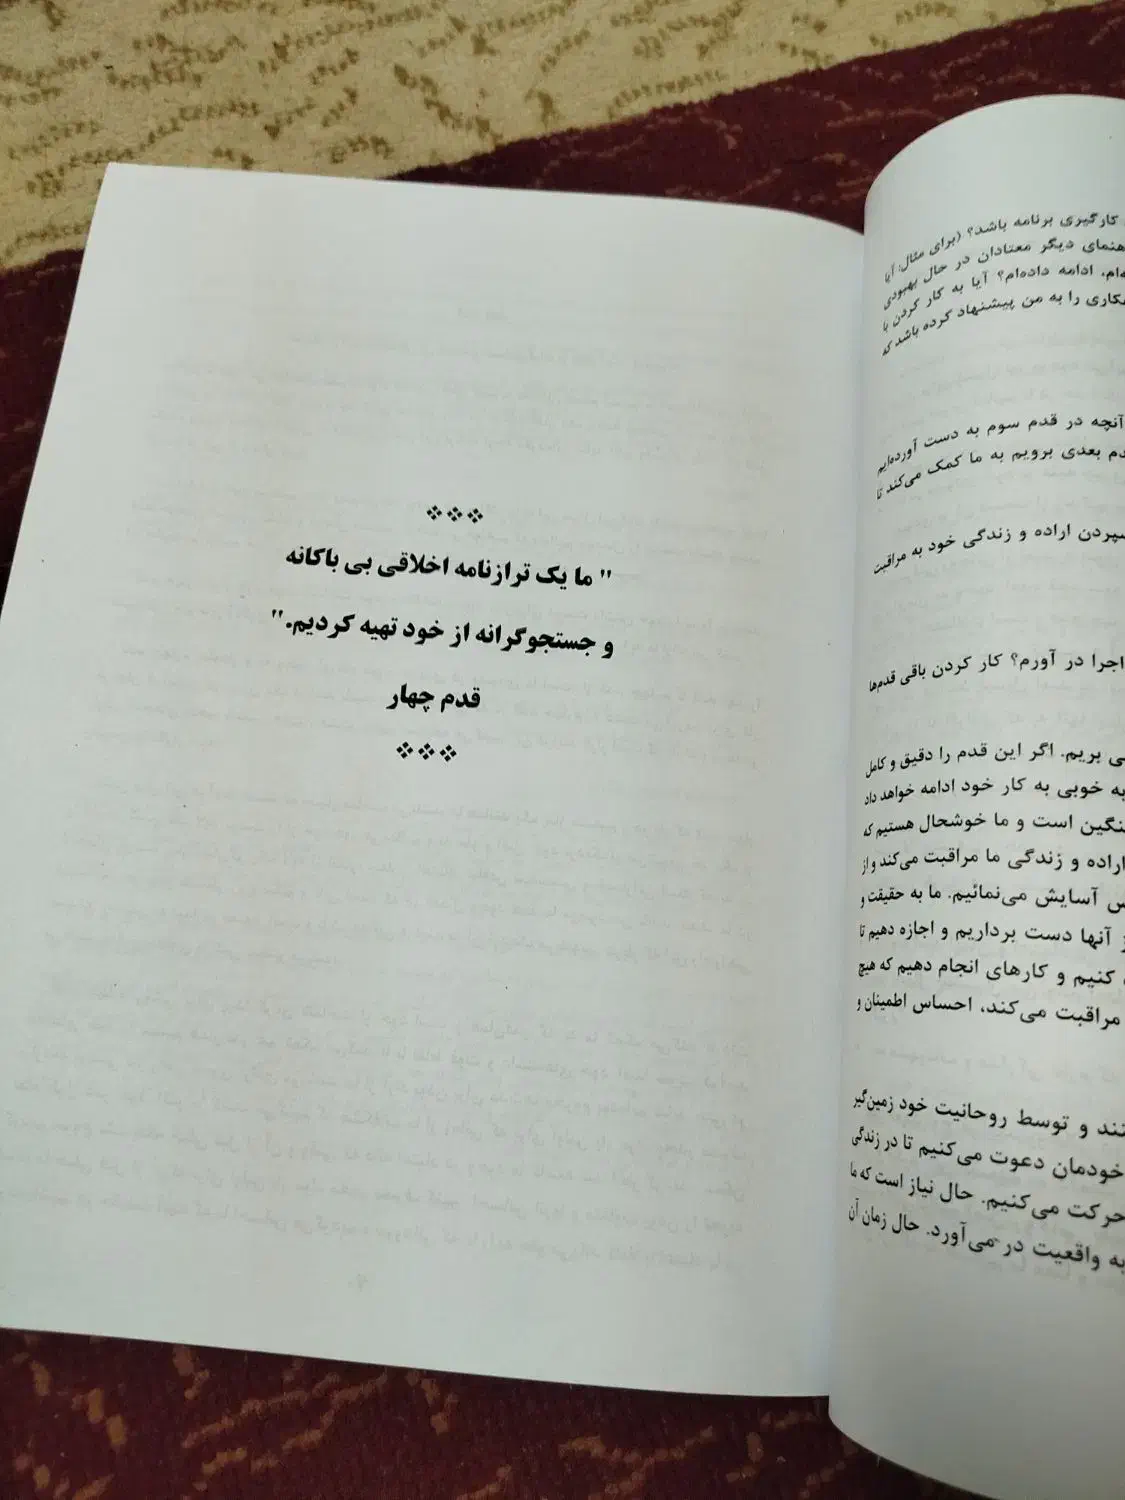 کارگیری برنامه باشد؟ (برای مثال: آیا
هنمای دیگر معتادان در حال بهبودی
ه‌ام، ادامه داده‌ام؟ آیا به کار کردن با
کاری را به من پیشنهاد کرده باشد که
آنچه در قدم سوم به دست آورده‌ایم
دم بعدی برویم به ما کمک می‌کند تا
سپردن اراده و زندگی خود به مراقبت
اجرا در آورم؟ کار کردن باقی قدم‌ها
ی بریم. اگر این قدم را دقیق و کامل
به خوبی به کار خود ادامه خواهد داد
نگین است و ما خوشحال هستیم که
اراده و زندگی ما مراقبت می‌کند و از
س آسایش می‌نمائیم. ما به حقیقت و
ز آنها دست برداریم و اجازه دهیم تا
کنیم و کارهای انجام دهیم که هیچ
مراقبت می‌کند، احساس اطمینان و
تند و توسط روحانیت خود زمین‌گیر
خودمان دعوت می‌کنیم تا در زندگی
حرکت می‌کنیم. حال نیاز است که ما
به واقعیت در می‌آورد. حال زمان آن
❖❖❖
" ما یک ترازنامه اخلاقی بی باکانه
و جستجوگرانه از خود تهیه کردیم."
قدم چهار
❖❖❖